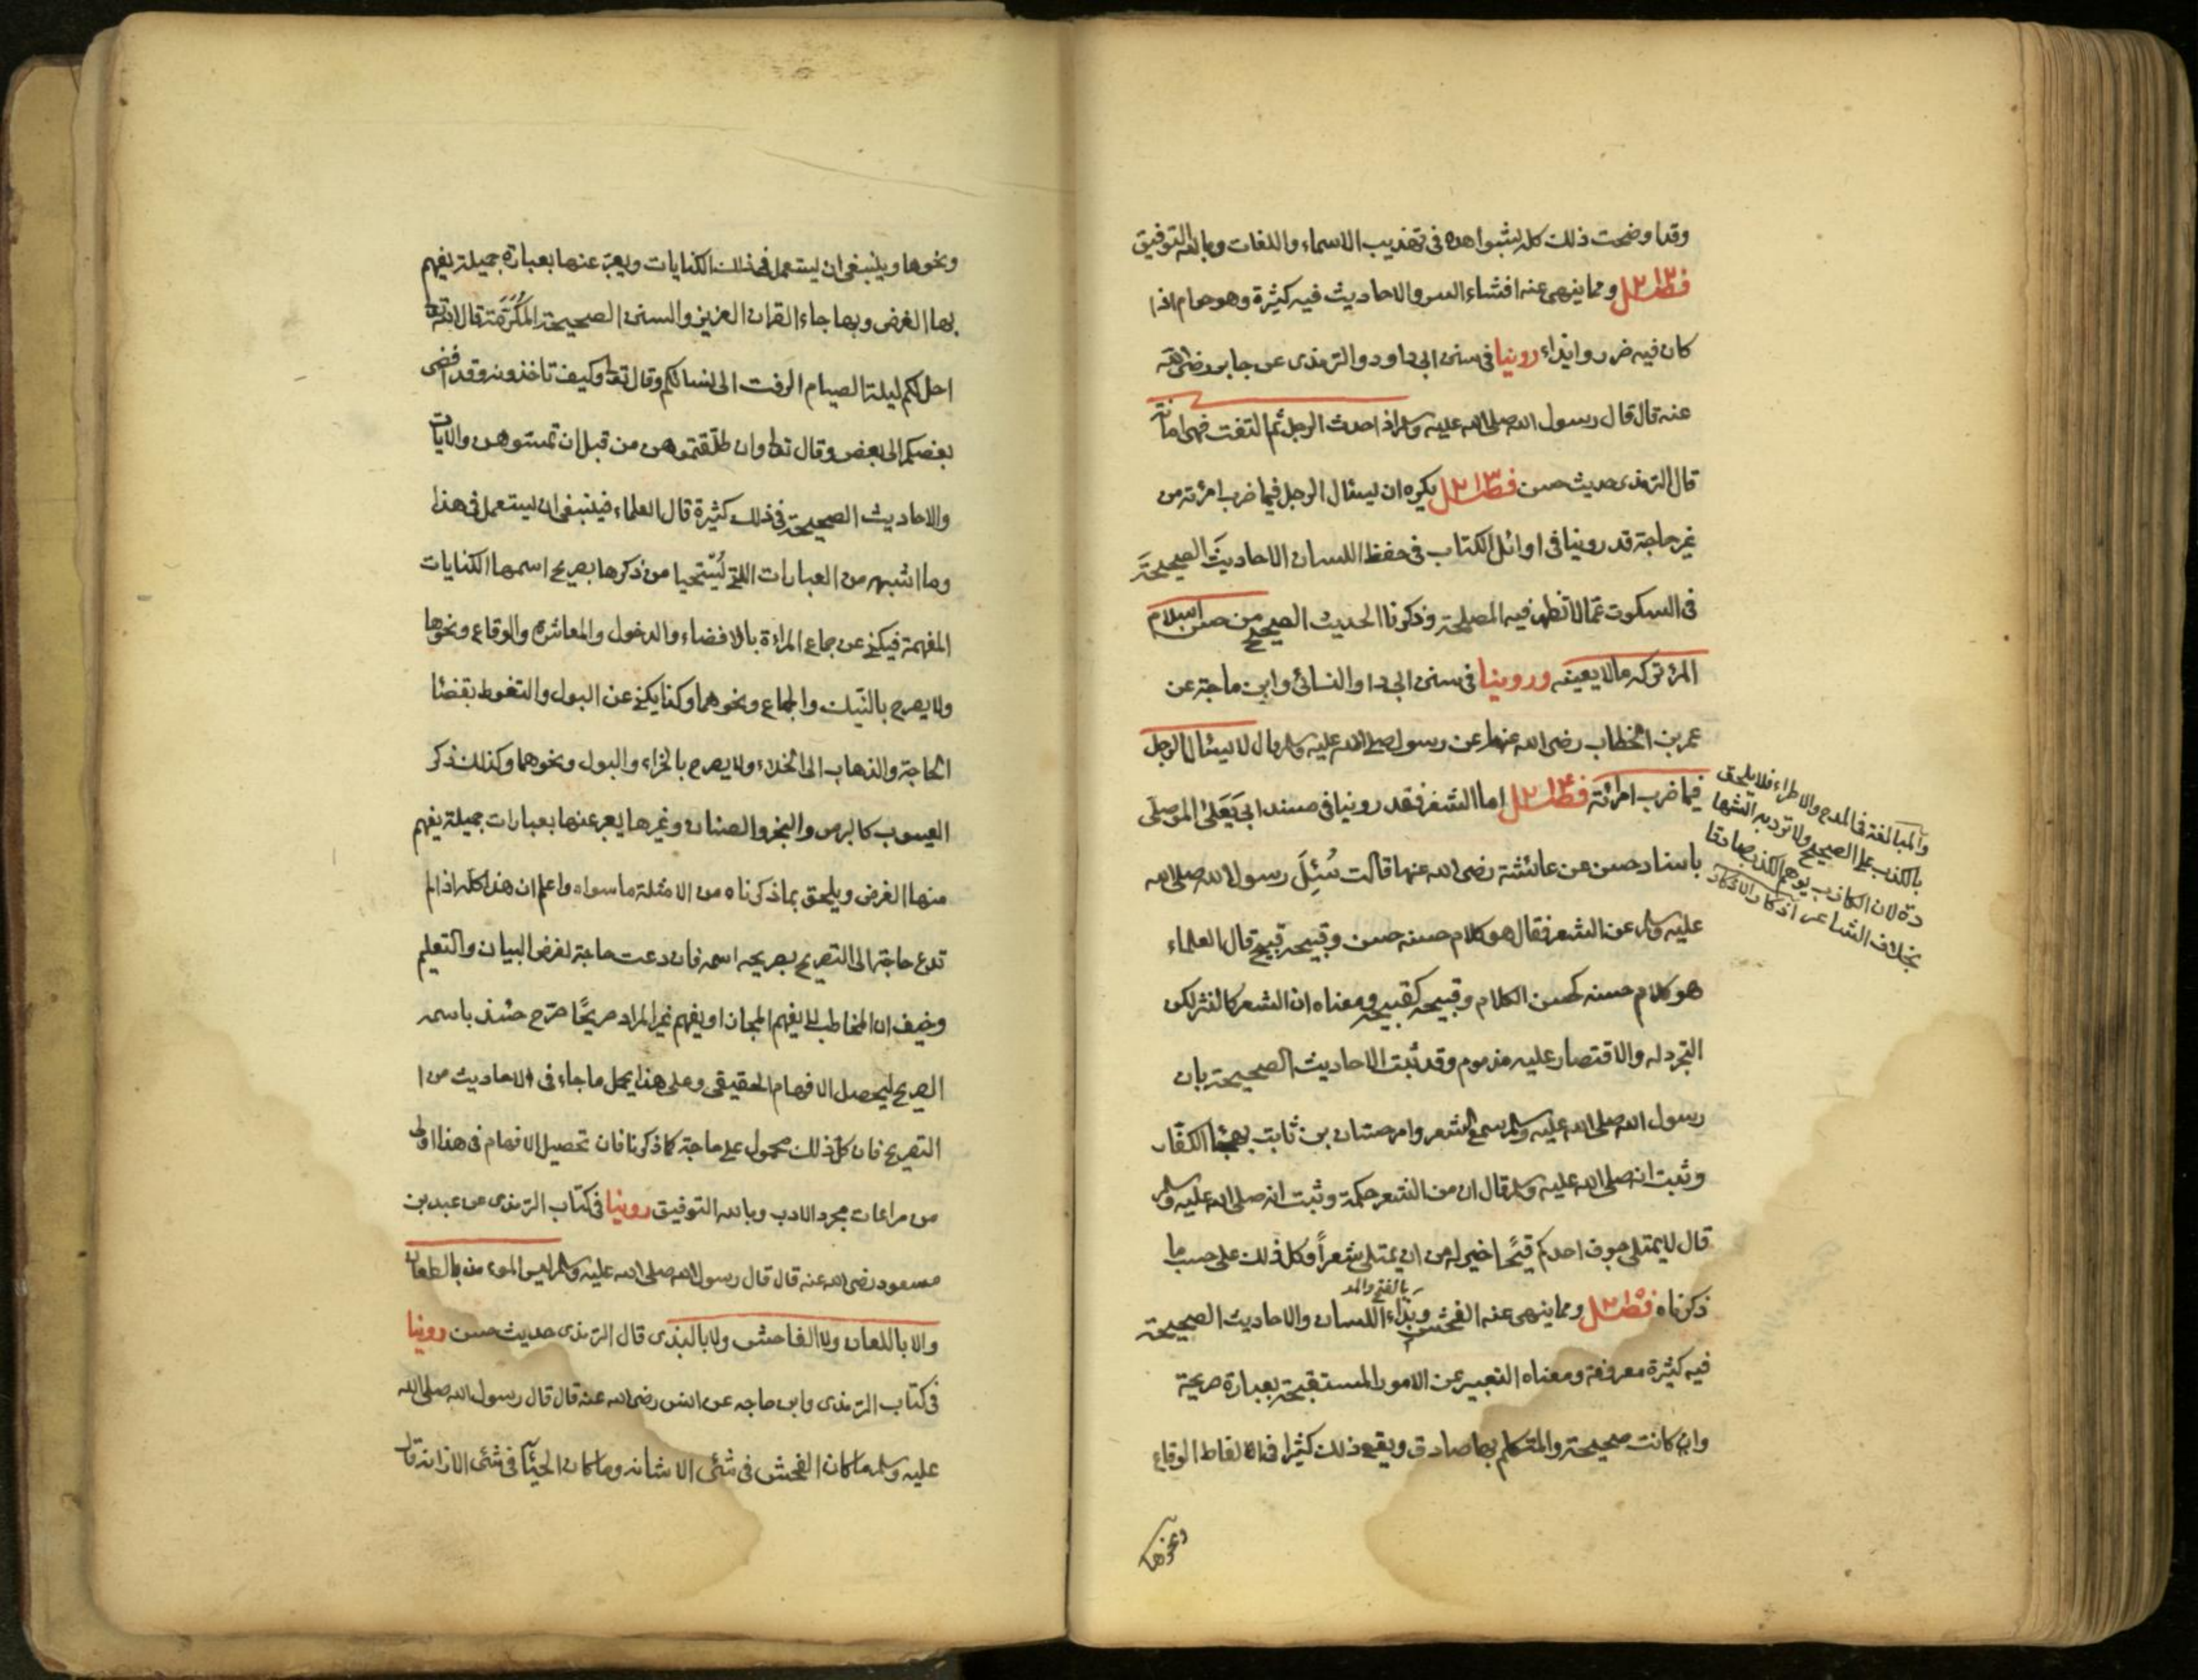 وقد اوضحت ذلك كله بشواهده فى تهذيب الاسماء واللغات وبالله التوفيق
فصل ومما ينهى عنه افشاء السر والاحاديث فيه كثيرة وهو حرام اذا
كان فيه ضرر وايذاء روينا فى سنن ابى داود والترمذى عن جابر رضى الله
عنه قال قال رسول الله صلى الله عليه وسلم اذا حدث الرجل ثم التفت فهى امانة
قال الترمذى حديث حسن فصل يكره ان يسئال الرجل فيما ضرب امرئته من
غير حاجة قد روينا فى اوائل الكتاب فى حفظ اللسان الاحاديث الصحيحة
فى السكوت عما لا تظهر فيه المصلحة وذكرنا الحديث الصحيح من حسن اسلام
المرئ تركه مالا يعنيه وروينا فى سنن ابى دا والنسائى وابن ماجة عن
عمر بن الخطاب رضى الله عنهما عن رسول صلى الله عليه وسلم قال لا يسئال الرجل
فيما ضرب امرأته فصل اما الشعر فقد روينا فى مسند ابى يَعَلىَ الموصلى
باسناد حسن عن عائشة رضى الله عنها قالت سُئِلَ رسول الله صلى الله
عليه وسلم عن الشعر فقال هو كلام حسنه حسن وقبيحه قبيح قال العلماء
هو كلام حسنه كحسن الكلام وقبيحه كقبيحه ومعناه ان الشعر كالنثر لكن
التجرد له والاقتصار عليه مذموم وقد ثبت الاحاديث الصحيحة بان
رسول الله صلى الله عليه وسلم سمع الشعر وامر حسان بن ثابت بهجاء الكفار
وثبت انه صلى الله عليه وسلم قال ان من الشعر حكمة وثبت انه صلى الله عليه وسلم
قال لا يمتلى جوف احدكم قيحًا خير له من ان يمتلى شعراً وكل ذلك على حسب ما
ذكرناه فصل ومما ينهى عنه الفحش وبذاء اللسان والاحاديث الصحيحة
بالفتح والمد
فيه كثيرة معروفة ومعناه التعبير عن الامور المستقبحة بعبارة صريحة
وان كانت صحيحة والمتكلم بها صادق ويقع ذلك كثيرا فى الفاظ الوقاع
ونحوها
والمبالغة فى المدح والاطراء فلا يلحق
بالكذب على الصحيح ولا ترد به الشها
دة لان الكاذب يوهم الكذب صادقا
بخلاف الشاعر اذكار الاذكار
ونحوها وينبغى ان يستعمل فى ذلك الكنايات ويعبر عنها بعبارة جميلة يفهم
بها الغرض وبها جاء القران العزيز والسنن الصحيحة المكرَّمة قال الله تعا
احل لكم ليلة الصيام الرفث الى نسائكم وقال تعا وكيف تاخذونه وقد افضى
بعضكم الى بعض وقال تعا وان طلقتموهن من قبل ان تمسوهن والايات
والاحاديث الصحيحة فى ذلك كثيرة قال العلماء فينبغى ان يستعمل فى هذا
وما اشبهه من العبارات اللتى يُسْتحيا من ذكرها بصريح اسمها الكنايات
المفهمة فيكنى عن جماع المراءة بالافضاء والدخول والمعاشرة والوقاع ونحوها
ولا يصرح بالنيك والجماع ونحوهما وكذا يكنى عن البول والتغوط بقضاء
الحاجة والذهاب الى الخلاء ولا يصرح بالخراء والبول ونحوهما وكذلك ذكر
العيوب كالبرص والبخر والصنان وغيرها يعبر عنها بعبارات جميلة يفهم
منها الغرض ويلحق بما ذكرناه من الامثلة ما سواه واعلم ان هذا كله اذا لم
تدع حاجة الى التصريح بصريحه اسمه فان دعت حاجة لغرض البيان والتعليم
وخيف ان المخاطب لا يفهم المجاز او يفهم غير المراد صريحًا صرّح حينئذ باسمه
الصريح ليحصل الافهام الحقيقى وعلى هذا يحمل ماجاء فى الاحاديث من ا
التصريح فان كل ذلك محمول على حاجة كما ذكرنا فان تحصيل الافهام فى هذا اولى
من مراعات مجرد الادب وبالله التوفيق روينا فى كتاب الترمذى عن عبد بن
مسعود رضى الله عنه قال قال رسول الله صلى الله عليه وسلم ليس المومن بالطعان
والا باللعان ولا الفاحش ولا بالبذى قال الترمذى حديث حسن روينا
فى كتاب الترمذى وابن ماجه عن انس رضى الله عنه قال قال رسول الله صلى الله
عليه وسلم ما كان الفحش فى شئى الا شانه وما كان الحيآ فى شئى الا زانه قال